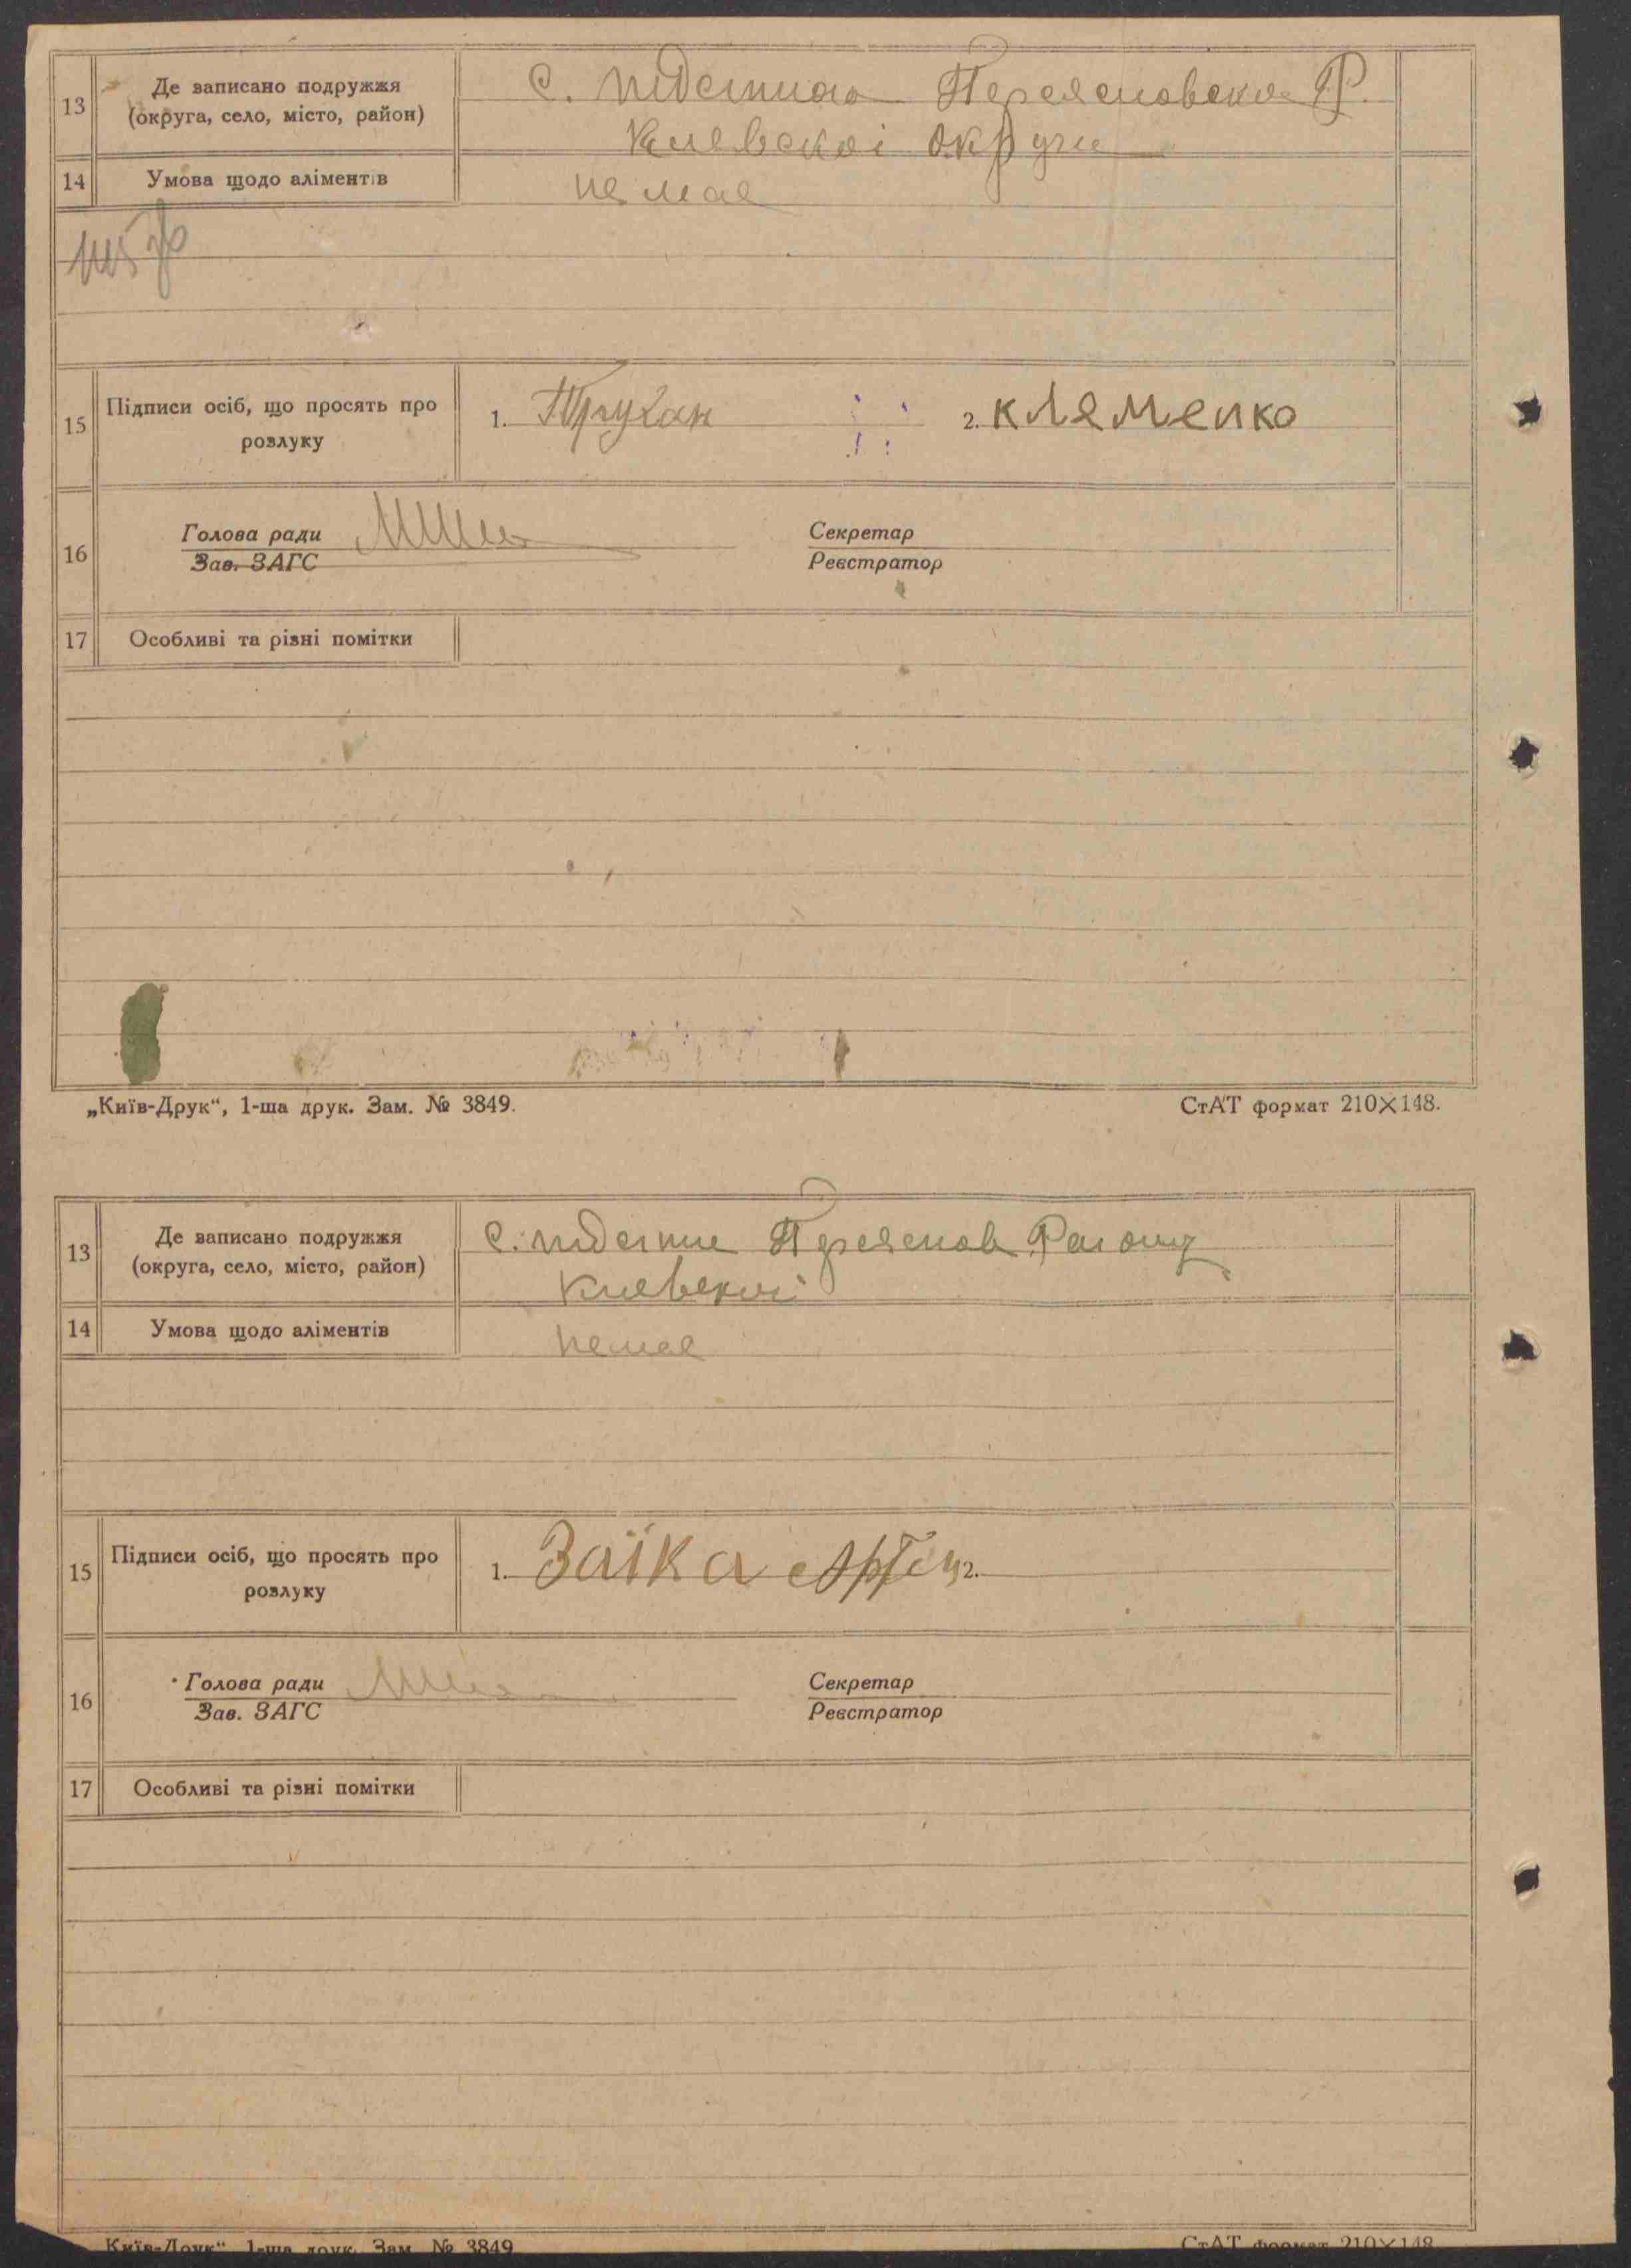 13
Де записано подружжя
(округа, село, місто, район)
С. Переясловскоі Р.
Киевскоі Округи
14
Умова щодо аліментів
немае
15
Підписи осіб, що просять про
розлуку
1. Трухан
2. кляменко
16
Голова ради
Зав. ЗАГС
Секретар
Реєстратор
17
Особливі та різні помітки
„Київ-Друк“, 1-ша друк. Зам. № 3849.
СтАТ формат 210×148.
13
Де записано подружжя
(округа, село, місто, район)
С. Переяслов Району
Киевскоі
14
Умова щодо аліментів
немае
15
Підписи осіб, що просять про
розлуку
1. Заїка Артем
2.
16
Голова ради
Зав. ЗАГС
Секретар
Реєстратор
17
Особливі та різні помітки
Київ-Друк“, 1-ша друк. Зам. № 3849
СтАТ формат 210×148